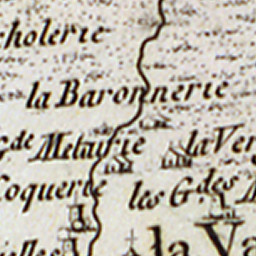 cholerie
la Baronnerie
G.de Metairie
la Ver
Coquerie
les G.des M
ielles
la Va